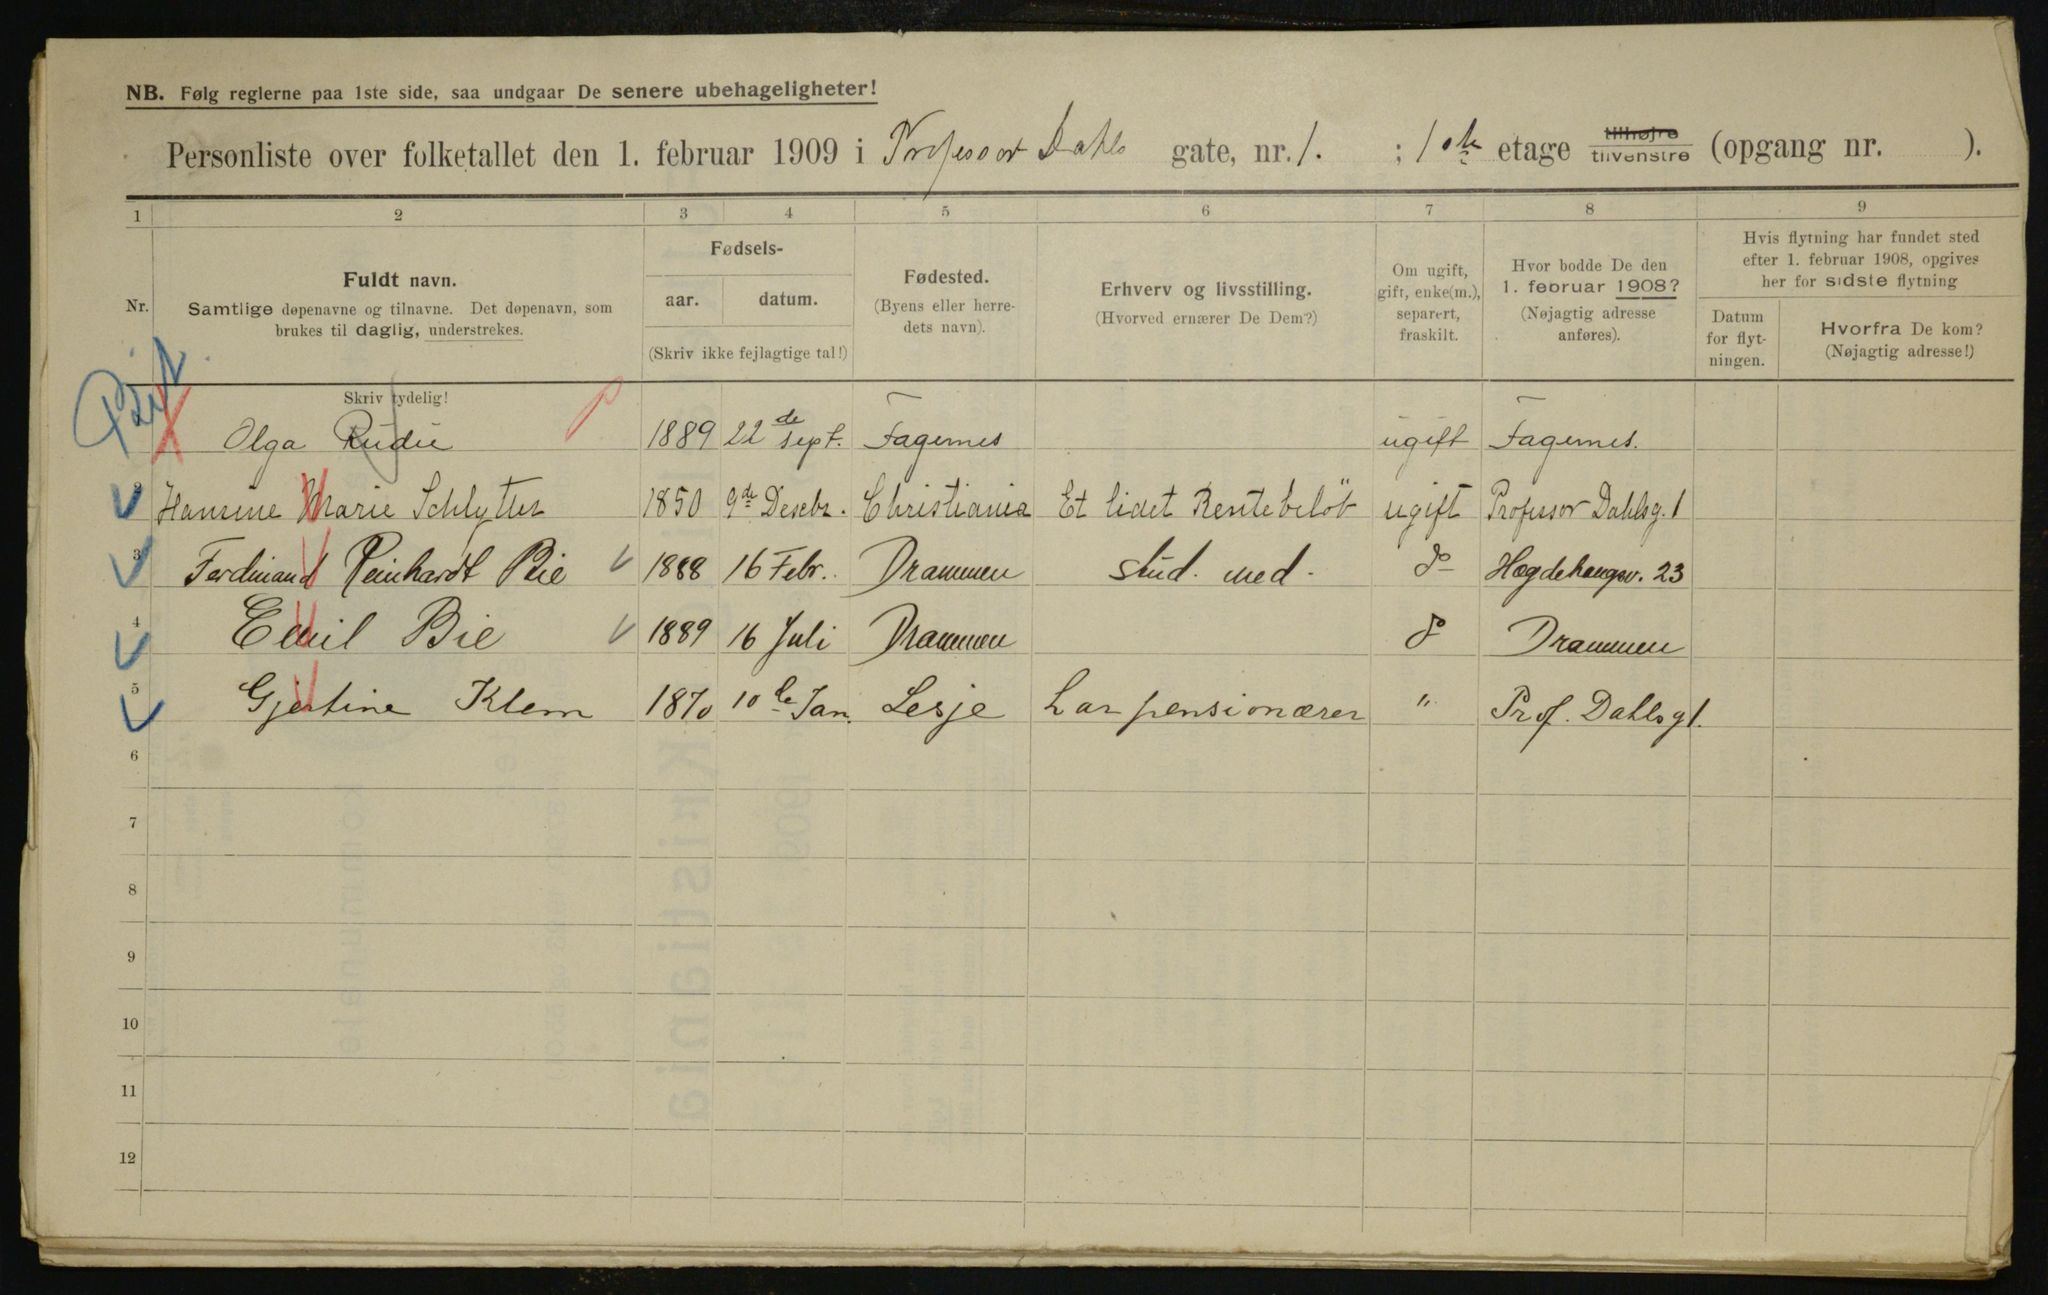 NB. Følg reglerne paa 1ste side, saa undgaar De senere ubehageligheter!
Personliste over folketallet den 1. februar 1909 i Professor Dahls gate, nr. 1. ; 1ste etage tilhøjre tilvenstre (opgang nr. ).
1 2 3 4 5 6 7 8 9
Nr.
Fuldt navn.
Samtlige døpenavne og tilnavne. Det døpenavn, som
brukes til daglig, understrekes.
Skriv tydelig!
Fødsels-
aar. datum.
(Skriv ikke fejlagtige tal!)
Fødested.
(Byens eller herre-
dets navn).
Erhverv og livsstilling.
(Hvorved ernærer De Dem?)
Om ugift,
gift, enke(m.),
separert,
fraskilt.
Hvor bodde De den
1. februar 1908?
(Nøjagtig adresse
anføres).
Hvis flytning har fundet sted
efter 1. februar 1908, opgives
her for sidste flytning
Datum
for flyt-
ningen.
Hvorfra De kom?
(Nøjagtig adresse!)
Olga Rudie 1889 22de sept. Fagernes ugift Fagernes.
2 Hansine Marie Schlytter 1850 9de Desebr. Christiania Et lidet Rentebeløb ugift Professor Dahlsg. 1
3 Ferdinand Reinhardt Bie 1888 16 Febr. Drammen stud. med. do Hægdehaugsv. 23
4 Emil Bie 1889 16 Juli Drammen do Drammen
5 Gjertine Klem 1870 10de Jan. Lesje har pensionærer " Prof. Dahlsg 1.
6
7
8
9
10
11
12